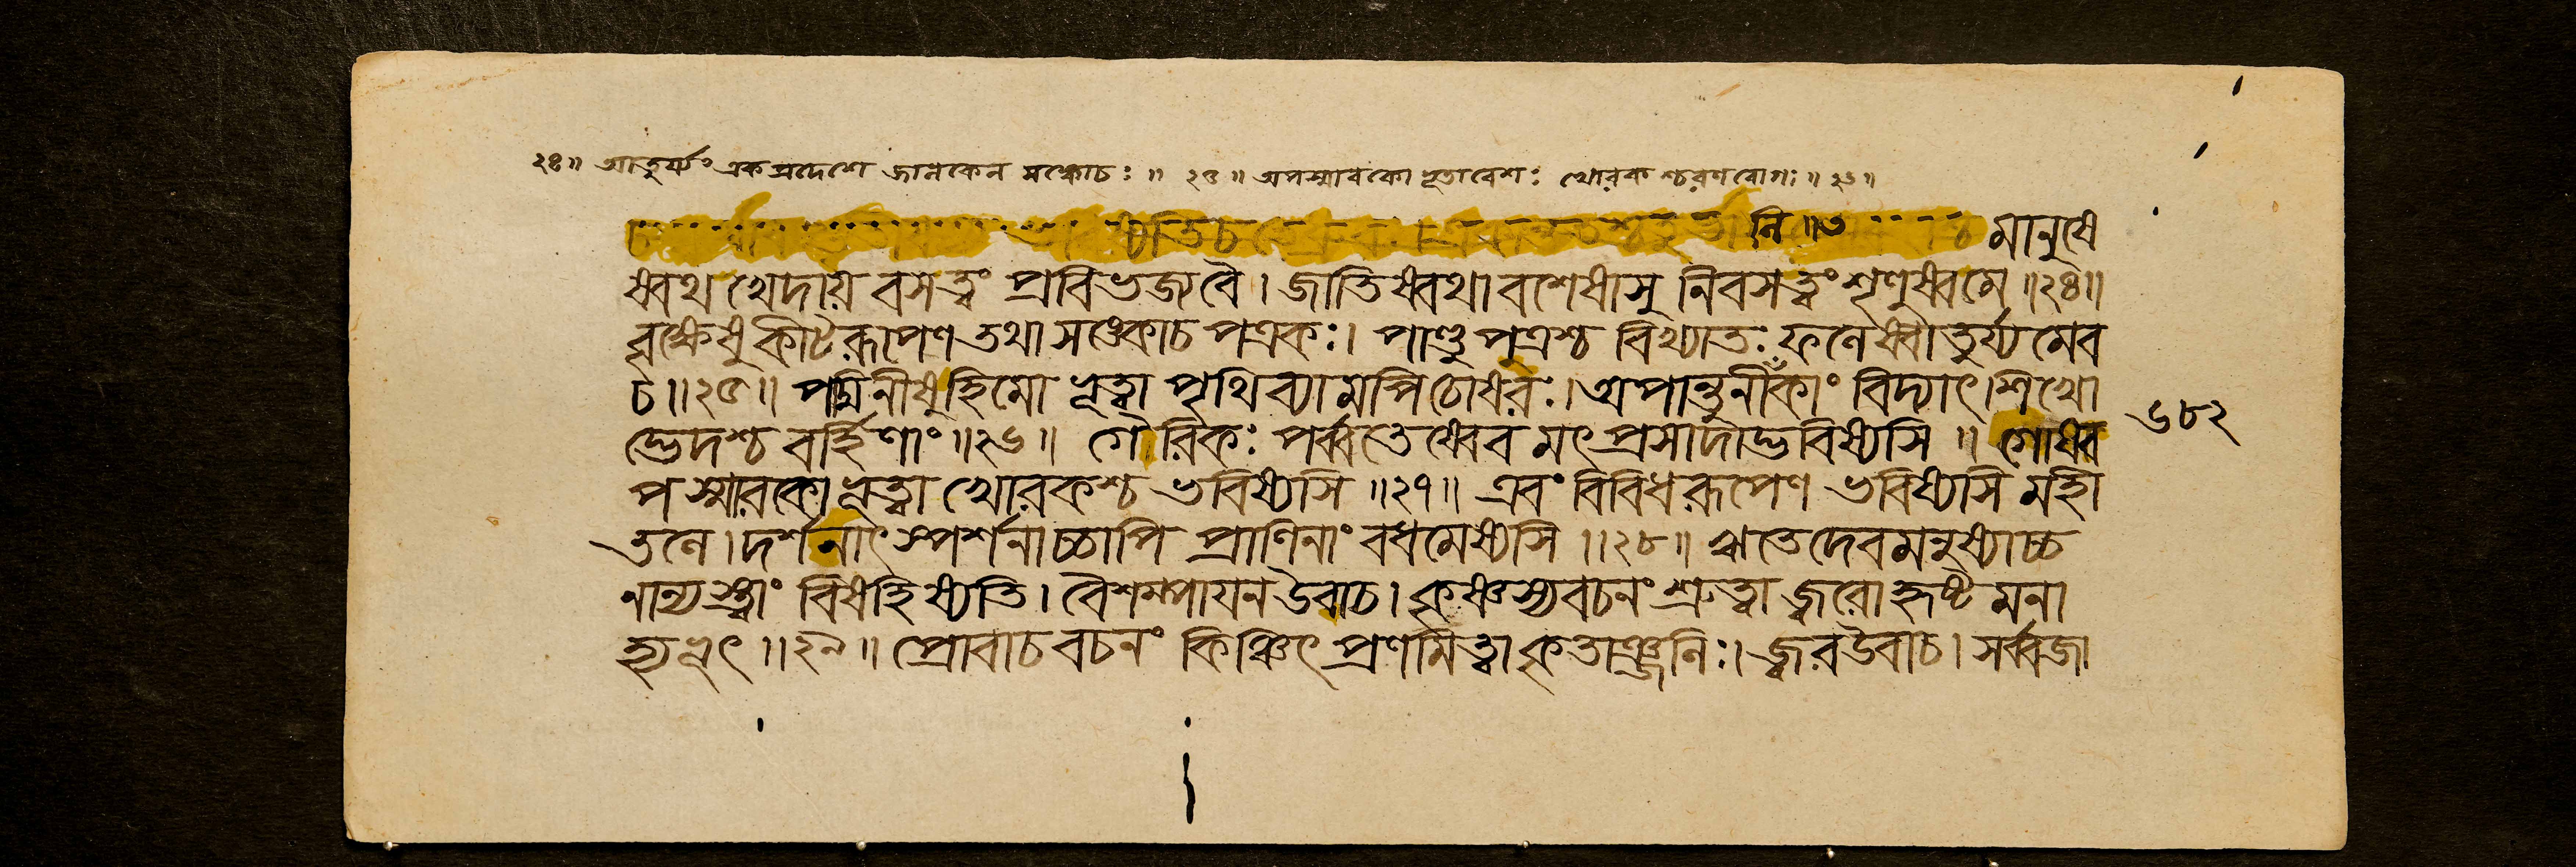 ২৪॥ আতুর্য্যং একপ্রদেশে জানকেন সঙ্কোচঃ॥ ২৫॥ অপস্মারকো ভূতাবেশঃ খোরকশ্চরণরোগঃ॥ ২৬॥
নি॥৩ মানুষে
ষ্বথ খেদায় বসত্বং প্রবিভজ্যবৈ। জাতিষ্বথাবশেষাসু নিবসত্বং শৃণুষ্বমে॥২৪॥
বৃক্ষেষু কীটরূপেণ তথা সঙ্কোচপত্রকঃ। পাণ্ডুপত্রশ্চ বিখ্যাতঃ ফলেষ্বাতুর্য্যমেব
চ॥২৫॥ পদ্মিনীষু হিমো ভূত্বা পৃথিব্যামপি চোষরঃ। অপান্তু নীলিকাং বিদ্যাৎ শিখো
দ্ভেদশ্চ বর্হিণাং॥২৬॥ গৈরিকঃ পর্ব্বতেষ্বেব মৎপ্রসাদাদ্ভবিষ্যসি॥ গোষ্বব
পস্মারকো ভূত্বা খোরকশ্চ ভবিষ্যসি॥২৭॥ এবং বিবিধরূপেণ ভবিষ্যসি মহী
তলে। দর্শনাৎ স্পর্শনাচ্চাপি প্রাণিনাং বধমেষ্যসি॥২৮॥ ঋতে দেবমনুষ্যাচ্চ
নান্যস্ত্বাং বিষহিষ্যতি। বৈশম্পায়ন উবাচ। কৃষ্ণস্য বচনং শ্রুত্বা জ্বরো হৃষ্টমনা
হ্যভূৎ॥২৯॥ প্রোবাচ বচনং কিঞ্চিৎ প্রণমিত্বা কৃতাঞ্জলিঃ। জ্বর উবাচ। সর্ব্বজা
৬৮২